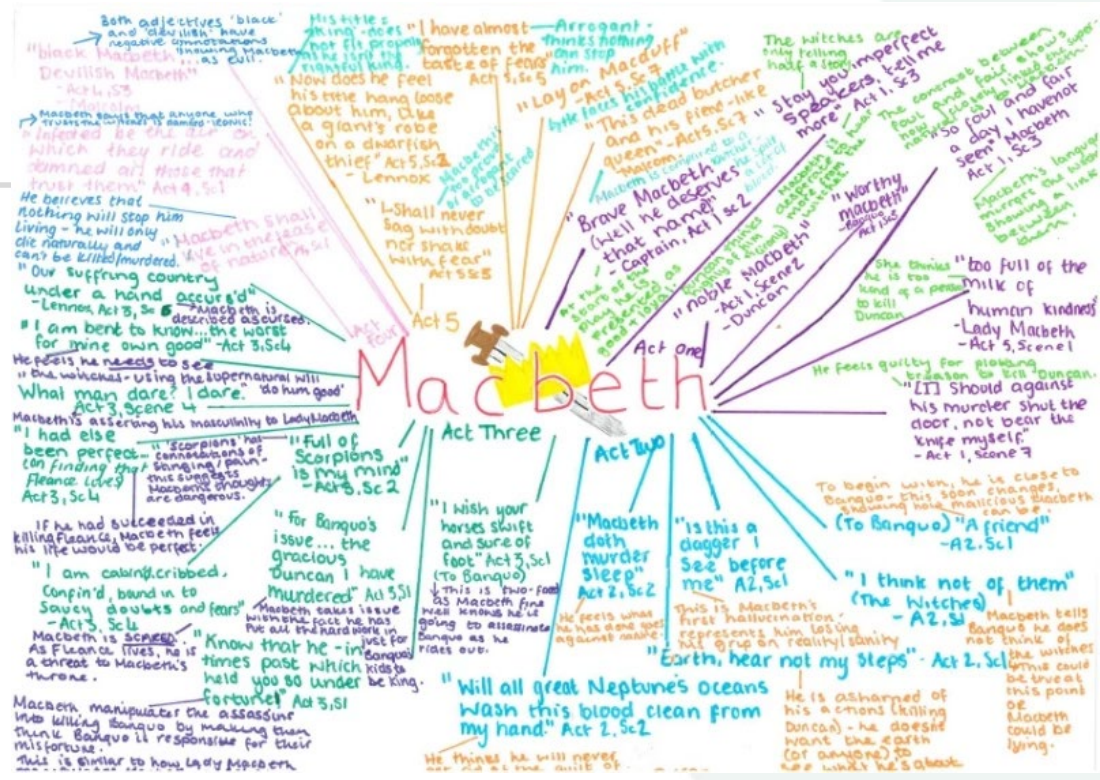 Both adjectives 'black'
and 'devilish' have
negative connotations
showing Macbeth
as evil.
"black Macbeth...
Devilish Macbeth"
- Act 4, S3
- Malcolm
Macbeth says that anyone who
trusts the witches is damned - ironic!
"Infected be the air on
which they ride and
damned all those that
trust them" Act 4, Sc1
He believes that
nothing will stop him
living - he will only
die naturally and
can't be killed/murdered.
"Macbeth shall
live in the lease
of nature",
Act Four
His title =
'king' - does
not fit properly
as he isn't the
rightful king.
"Now does he feel
his title hang loose
about him, like
a giant's robe
on a dwarfish
thief" Act 5, Sc2
- Lennox
"I have almost
forgotten the
taste of fears"
Act 5, Sc5
Arrogant -
thinks nothing
can stop
him.
"I shall never
sag with doubt
nor shake
with fear"
Act 5
Macbeth's
too proud
to be scared
"Lay on Macduff"
- Act 5, Sc7
faces his battle with
confidence.
"This dead butcher
and his fiend-like
queen" - Act 5, Sc7
Malcolm
Macbeth is compared to a
butcher
blood.
Act 5
Macbeth
"Brave Macbeth
(Well he deserves
that name)"
- Captain, Act 1 Sc2
At the
start of the
play he is
presented as
good + loyal.
"noble Macbeth"
- Act 1, Scene 2
- Duncan
Duncan thinks
highly of
The witches are
only telling
half a story
"Stay you imperfect
speakers, tell me
more" Act 1, Sc3
The contrast between
foul and fair shows
"So foul and fair
a day I have not
seen" Macbeth
Act 1, Sc3
Macbeth's language
mirrors the
showing a link
between
them.
"Worthy
Macbeth"
- Banquo
She thinks
he is too
kind of a person
to kill
Duncan
"too full of the
milk of
human kindness"
- Lady Macbeth
- Act 5, Scene 1
He feels guilty for plotting
treason to kill Duncan.
"[I] should against
his murder shut the
door, not bear the
knife myself."
- Act 1, Scene 7
Act One
"Our suffring country
under a hand accurs'd"
- Lennox, Act 3, Sc 6
Macbeth is
described as cursed.
"I am bent to know...the worst
for mine own good" - Act 3, Sc4
He feels he needs to see
the witches - using the supernatural will
'do him good'
What man dare? I dare."
Act 3, Scene 4
Macbeth is asserting his masculinity to Lady Macbeth
"I had else
been perfect -
(on finding that
Fleance lives)
Act 3, Sc4
'Scorpions' has
connotations of
stinging/pain -
this suggests
Macbeth's thoughts
are dangerous.
"Full of
Scorpions
is my mind"
- Act 3, Sc 2
If he had succeeded in
killing Fleance, Macbeth feels
his life would be perfect.
"I am cabin'd, cribbed,
Confin'd, bound in to
Saucy doubts and fears"
- Act 3, Sc4
Macbeth is SCARED.
As Fleance lives, he is
a threat to Macbeth's
throne.
"For Banquo's
issue... the
gracious
Duncan I have
murdered" Act 3, S1
Macbeth takes issue
with the fact he has
put all the hard work in
just for
Banquo's
kids to
be king.
"Know that he - in
times past which
held you so under
fortune" Act 3, S1
Macbeth manipulates the assassins
into killing Banquo by making them
think Banquo is responsible for their
misfortune.
This is similar to how Lady Macbeth
Act Three
"I wish your
horses swift
and sure of
foot" Act 3, Sc1
(To Banquo)
This is two-faced
as Macbeth fine
well knows he is
going to assassinate
Banquo as he
rides out.
Act Two
"Macbeth
doth
murder
sleep"
Act 2, Sc2
He feels what
he has done goes
against nature.
"Is this a
dagger I
see before
me" A2, Sc1
This is Macbeth's
first hallucination.
represents him losing
his grip on reality/sanity
To begin with, he is close to
Banquo - this soon changes,
showing how malicious Macbeth
can be.
(To Banquo) "A friend"
- A2. Sc1
"I think not of them"
(The Witches)
- A2, S1
Macbeth tells
Banquo he does
not think of
the witches
This could
be true at
this point
or
Macbeth
could be
lying.
"Earth, hear not my steps" - Act 2, Sc1
He is ashamed of
his actions (killing
Duncan) - he doesn't
want the earth
(or anyone) to
see what he's about
"Will all great Neptune's oceans
wash this blood clean from
my hand." Act 2, Sc2
He thinks he will never